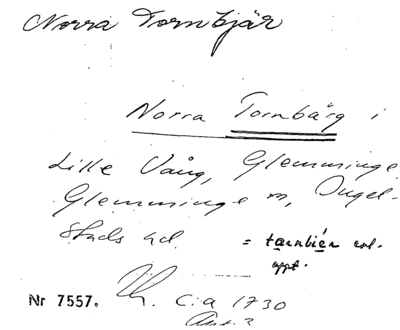 Norra Tornbjär
Norra Tornbärg i
Lille Vång, Glemminge
Glemminge sn, Ingel-
stads hd. = tarnbiér enl.
uppt.
Nr 7557. c:a 1730